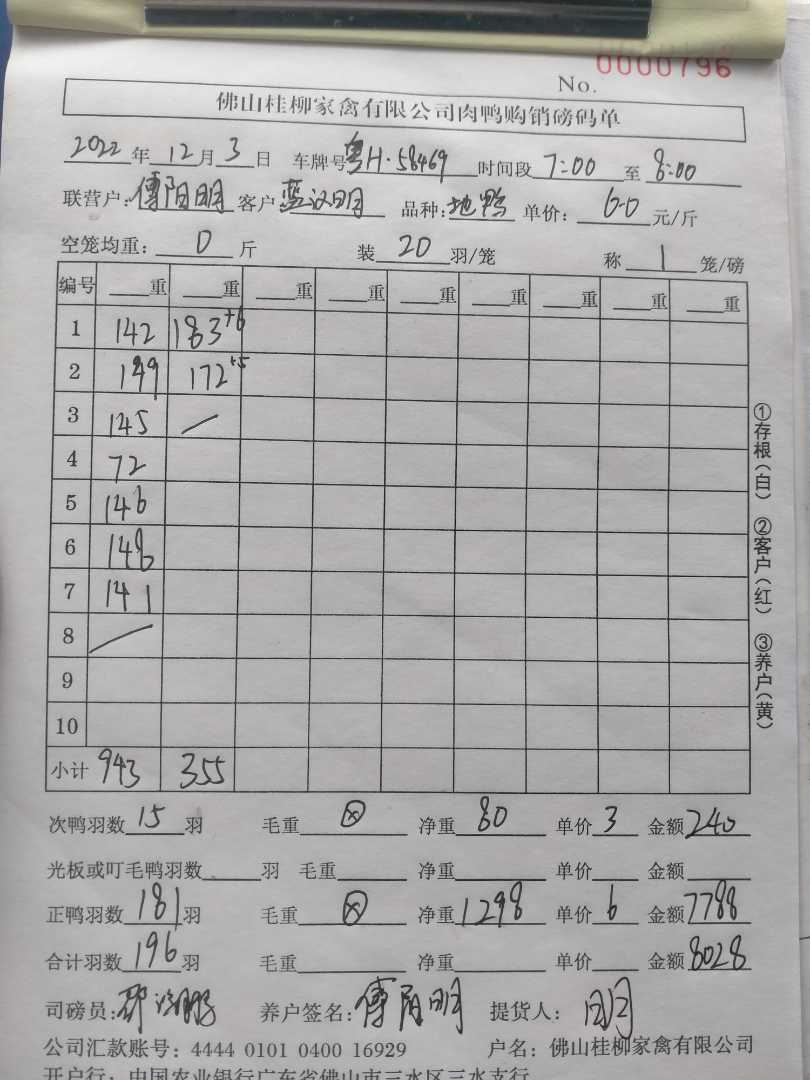 No. 0000796
佛山桂柳家禽有限公司肉鸭购销磅码单
2022年12月3日 车牌号粤H·58469 时间段7:00至8:00
联营户:傅阳明 客户蓝汉明 品种:地鸭 单价:6.0元/斤
空笼均重:0斤 装20羽/笼 称1笼/磅
编号 重 重 重 重 重 重 重 重 重
1 142 183+6
2 149 172+5
3 145 /
4 72
5 146
6 148
7 141
8 /
9
10
小计 943 355
次鸭羽数15羽 毛重⊗ 净重80 单价3 金额240
光板或叮毛鸭羽数 羽 毛重 净重 单价 金额
正鸭羽数181羽 毛重⊗ 净重1298 单价6 金额7788
合计羽数196羽 毛重 净重 单价 金额8028
司磅员: 养户签名:傅阳明 提货人:明
公司汇款账号:4444 0101 0400 16929 户名:佛山桂柳家禽有限公司
开户行:中国农业银行广东省佛山市三水区三水支行
①存根(白) ②客户(红) ③养户(黄)